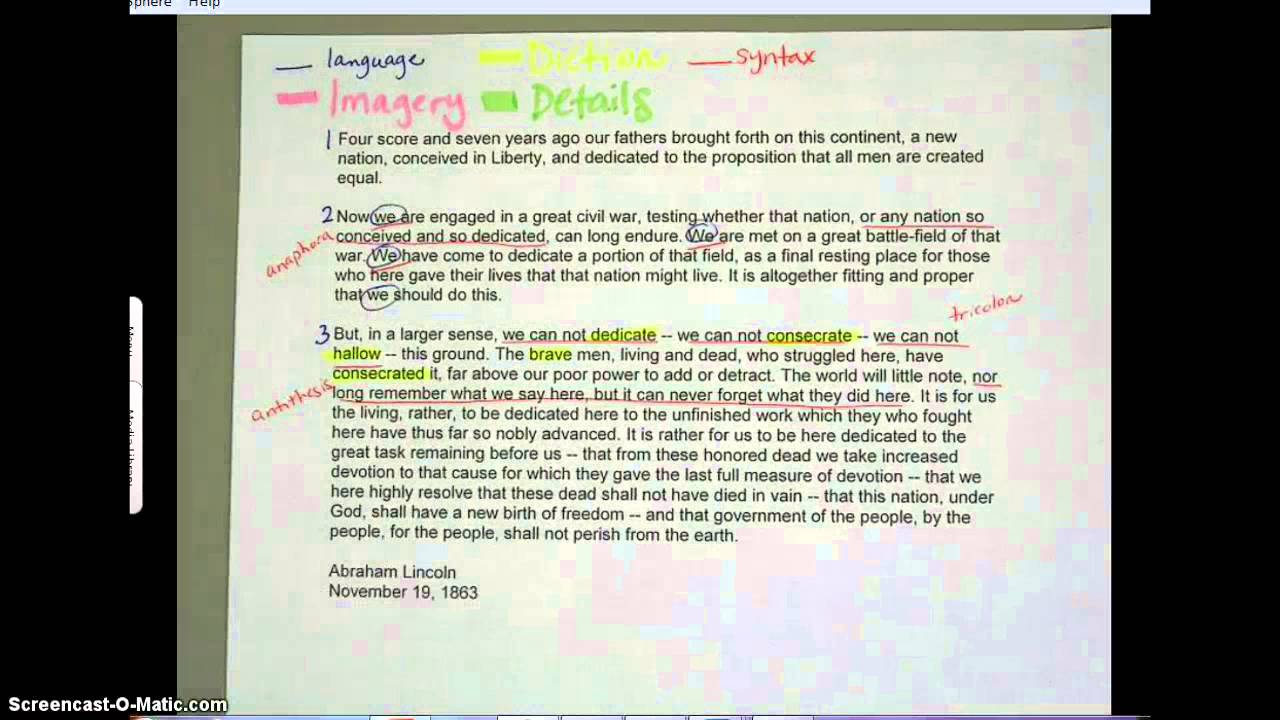 Sphere Help
language Diction syntax
Imagery Details
1 Four score and seven years ago our fathers brought forth on this continent, a new
nation, conceived in Liberty, and dedicated to the proposition that all men are created
equal.
2 Now we are engaged in a great civil war, testing whether that nation, or any nation so
anaphora conceived and so dedicated, can long endure. We are met on a great battle-field of that
war. We have come to dedicate a portion of that field, as a final resting place for those
who here gave their lives that that nation might live. It is altogether fitting and proper
that we should do this.
tricolon
3 But, in a larger sense, we can not dedicate -- we can not consecrate -- we can not
hallow -- this ground. The brave men, living and dead, who struggled here, have
consecrated it, far above our poor power to add or detract. The world will little note, nor
antithesis long remember what we say here, but it can never forget what they did here. It is for us
the living, rather, to be dedicated here to the unfinished work which they who fought
here have thus far so nobly advanced. It is rather for us to be here dedicated to the
great task remaining before us -- that from these honored dead we take increased
devotion to that cause for which they gave the last full measure of devotion -- that we
here highly resolve that these dead shall not have died in vain -- that this nation, under
God, shall have a new birth of freedom -- and that government of the people, by the
people, for the people, shall not perish from the earth.
Abraham Lincoln
November 19, 1863
Screencast-O-Matic.com